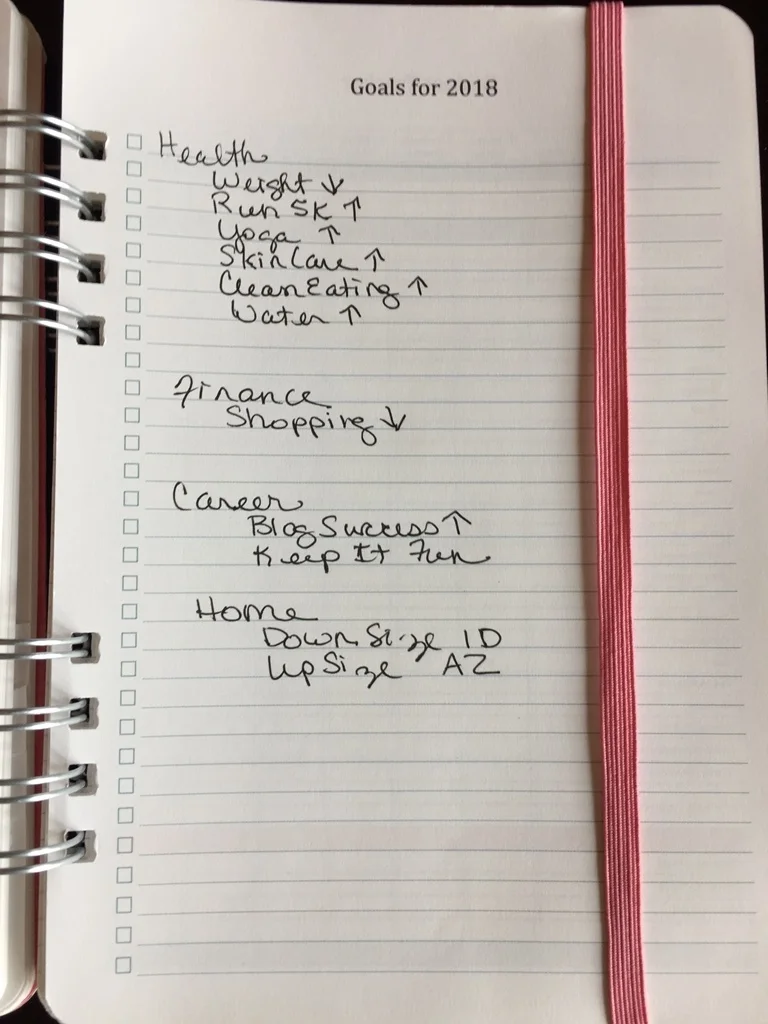 Goals for 2018
Health
Weight ↓
Run 5K ↑
Yoga ↑
Skin Care ↑
Clean Eating ↑
Water ↑
Finance
Shopping ↓
Career
Blog Success ↑
Keep It Fun
Home
DownSize ID
UpSize AZ